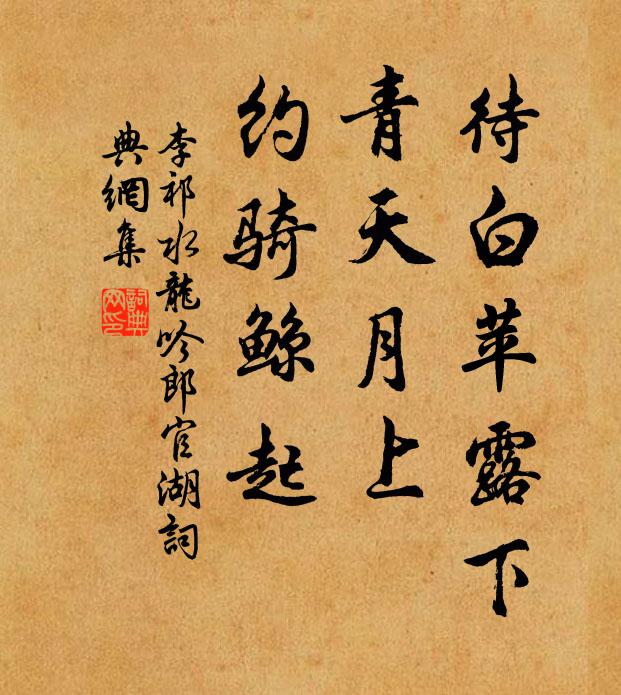 待白苹露下
青天月上
约骑鲸起
李祁水龍吟郎官湖詞
典網集
詞典網印